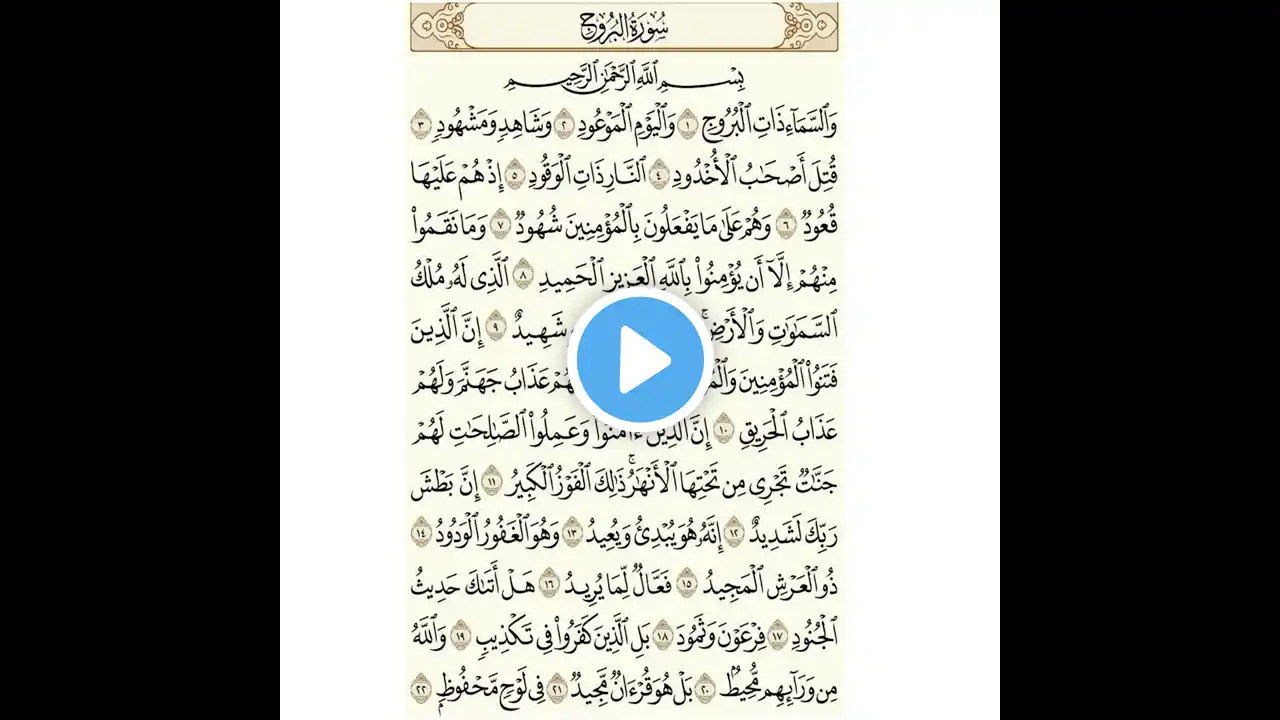 سُورَةُ البُرُوجِ
بِسْمِ ٱللَّهِ ٱلرَّحْمَٰنِ ٱلرَّحِيمِ
وَٱلسَّمَآءِ ذَاتِ ٱلْبُرُوجِ ١ وَٱلْيَوْمِ ٱلْمَوْعُودِ ٢ وَشَاهِدٍ وَمَشْهُودٍ ٣
قُتِلَ أَصْحَٰبُ ٱلْأُخْدُودِ ٤ ٱلنَّارِ ذَاتِ ٱلْوَقُودِ ٥ إِذْ هُمْ عَلَيْهَا
قُعُودٌ ٦ وَهُمْ عَلَىٰ مَا يَفْعَلُونَ بِٱلْمُؤْمِنِينَ شُهُودٌ ٧ وَمَا نَقَمُوا۟
مِنْهُمْ إِلَّآ أَن يُؤْمِنُوا۟ بِٱللَّهِ ٱلْعَزِيزِ ٱلْحَمِيدِ ٨ ٱلَّذِى لَهُۥ مُلْكُ
ٱلسَّمَٰوَٰتِ وَٱلْأَرْضِ ۚ شَهِيدٌ ٩ إِنَّ ٱلَّذِينَ
فَتَنُوا۟ ٱلْمُؤْمِنِينَ عَذَابُ جَهَنَّمَ وَلَهُمْ
عَذَابُ ٱلْحَرِيقِ ١٠ إِنَّ ٱلَّذِينَ ءَامَنُوا۟ وَعَمِلُوا۟ ٱلصَّٰلِحَٰتِ لَهُمْ
جَنَّٰتٌ تَجْرِى مِن تَحْتِهَا ٱلْأَنْهَٰرُ ۚ ذَٰلِكَ ٱلْفَوْزُ ٱلْكَبِيرُ ١١ إِنَّ بَطْشَ
رَبِّكَ لَشَدِيدٌ ١٢ إِنَّهُۥ هُوَ يُبْدِئُ وَيُعِيدُ ١٣ وَهُوَ ٱلْغَفُورُ ٱلْوَدُودُ ١٤
ذُو ٱلْعَرْشِ ٱلْمَجِيدُ ١٥ فَعَّالٌ لِّمَا يُرِيدُ ١٦ هَلْ أَتَىٰكَ حَدِيثُ
ٱلْجُنُودِ ١٧ فِرْعَوْنَ وَثَمُودَ ١٨ بَلِ ٱلَّذِينَ كَفَرُوا۟ فِى تَكْذِيبٍ ١٩ وَٱللَّهُ
مِن وَرَآئِهِم مُّحِيطٌۢ ٢٠ بَلْ هُوَ قُرْءَانٌ مَّجِيدٌ ٢١ فِى لَوْحٍ مَّحْفُوظٍۭ ٢٢